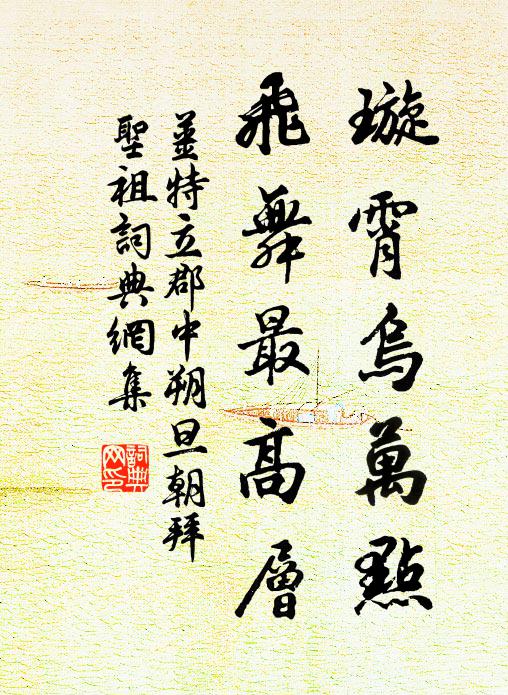 璇霄烏萬點
飛舞最高層
姜特立郡中朔旦朝拜
聖祖詞典網集
詞典
网印